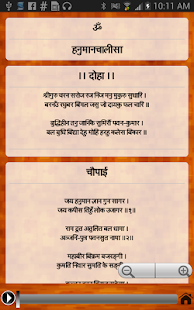 10:11 AM
ॐ
हनुमानचालीसा
।। दोहा ।।
श्रीगुरु चरन सरोज रज निज मनु मुकुरु सुधारि ।
बरनउँ रघुबर बिमल जसु जो दायकु फल चारि ॥
बुद्धिहीन तनु जानिके सुमिरौं पवन-कुमार ।
बल बुधि बिद्या देहु मोहिं हरहु कलेस बिकार ॥
चौपाई
जय हनुमान ज्ञान गुन सागर ।
जय कपीस तिहुँ लोक उजागर ॥१॥
राम दूत अतुलित बल धामा ।
अञ्जनि-पुत्र पवनसुत नामा ॥२॥
महाबीर बिक्रम बजरङ्गी ।
कुमति निवार सुमति के सङ्गी